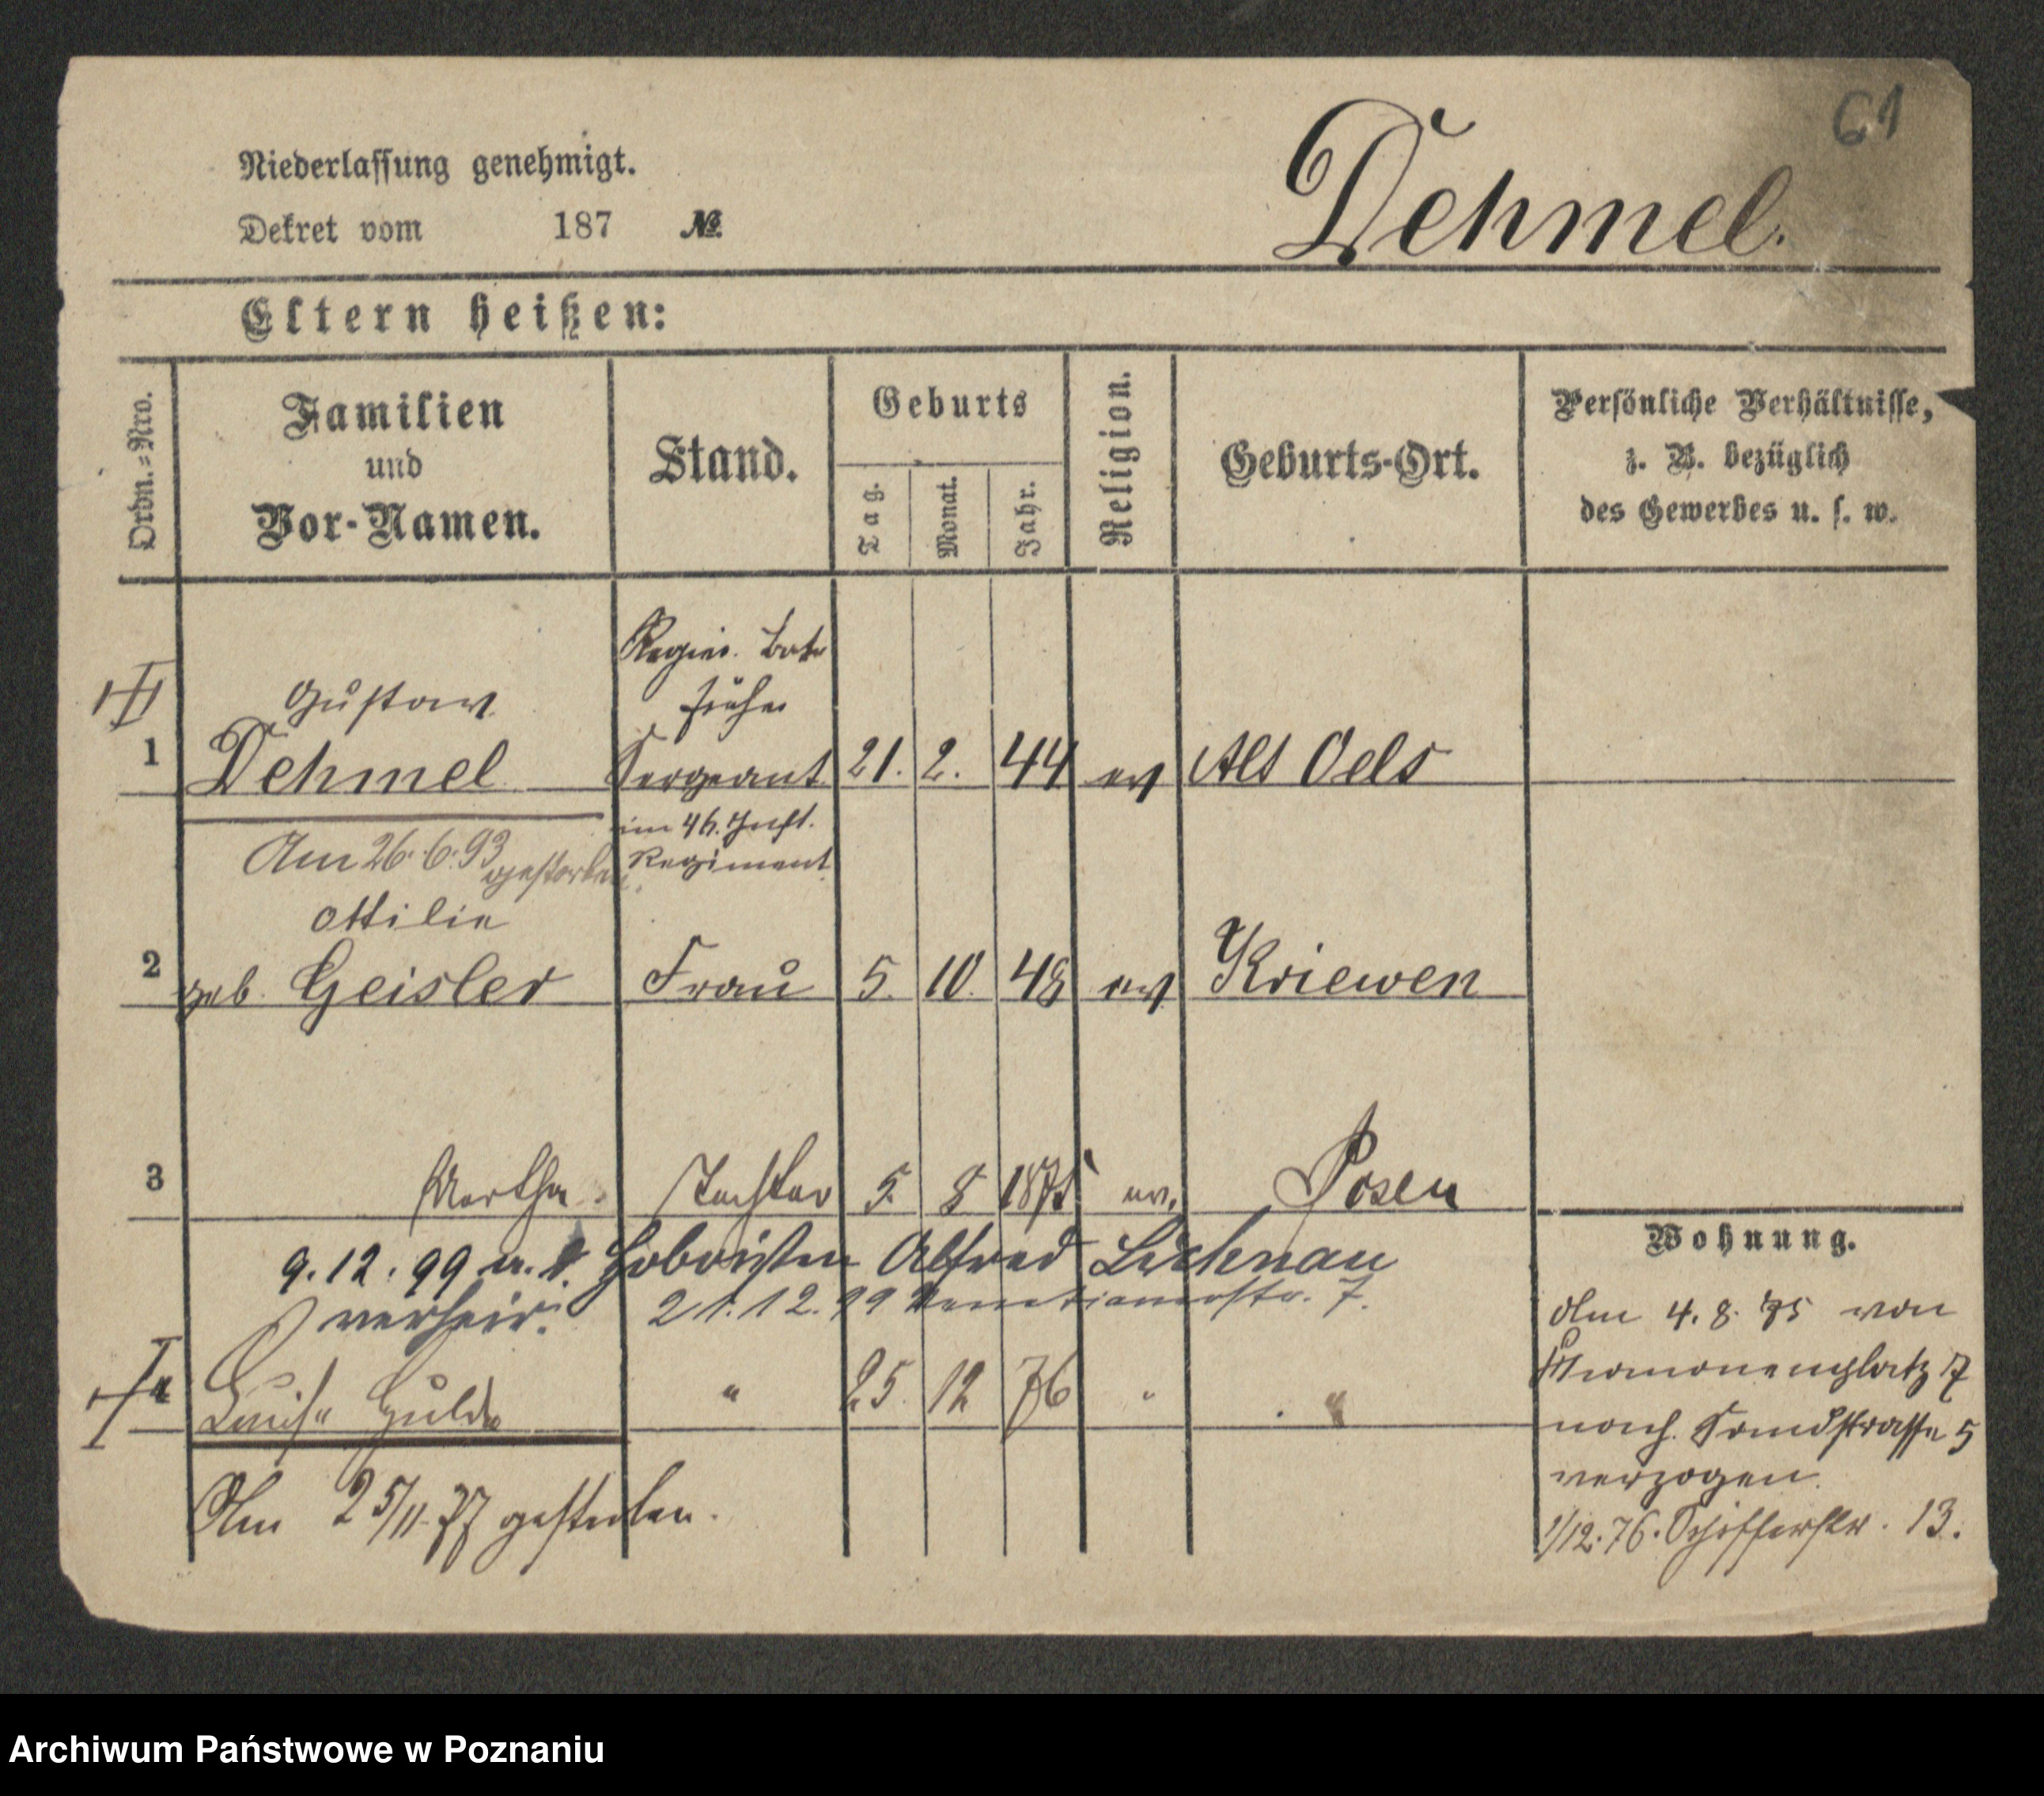 61
Dehmel.
Niederlassung genehmigt.
Dekret vom 187 №
Eltern heißen:
Ordn.=Nro.
Familien
und
Vor-Namen.
Stand.
Geburts
Tag.
Monat.
Jahr.
Religion.
Geburts-Ort.
Persönliche Verhältnisse,
z. B. bezüglich
des Gewerbes u. s. w.
Regier. Bote
früher
Gustav
1 Dehmel Sergeant 21. 2. 44 ev Alt Oels
im 46. Inft.
Regiment
Am 26.6.93 gestorben.
Ottilie
2 geb. Geisler Frau 5. 10. 48 ev Kriewen
3 Martha. Tochter 5. 8 1875 ev. Posen
9.12.99 m. d. Hoboisten Alfred Lichnau
verheir. 21.12.99 Venetianerstr. 7.
Luise Hulda " 25. 12 76 " "
Am 25/11.77 gestorben.
Wohnung.
Am 4.8.75 von
7
nach Sandstrasse 5
verzogen.
1/12.76. Schifferstr. 13.
Archiwum Państwowe w Poznaniu